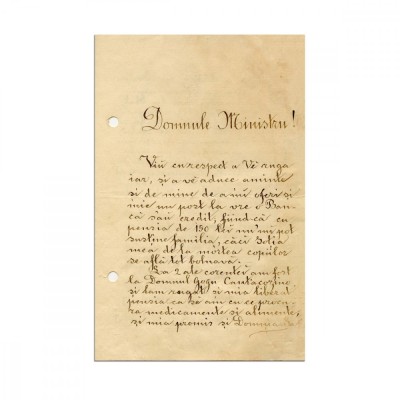 Domnule Ministru!
Viu cu respect a Vĕ ruga
iar, și a vĕ aduce aminte
și de mine de a'mi oferi și
mie un post la vre o Ban-
că saŭ credit, fiind-că cu
pensia de 150 lei nu'mi pot
susține familia, căci Soția
mea de la mórtea copiilor
se află tot bolnavă.
La 2 ale corentei am fost
la Domnul Gogu Cantacozino
și lam rugat și mia liberat
pensia ca să am cu ce procu-
ra medicamente și alimente,
și mia promis și Domnia